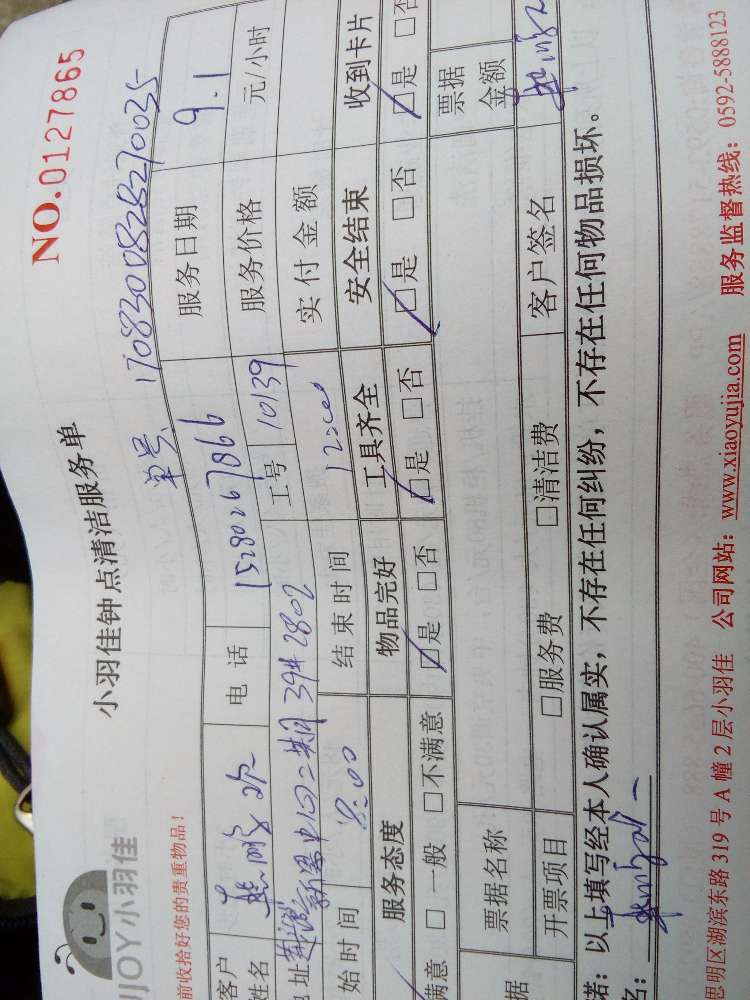 IJOY小羽佳
小羽佳钟点清洁服务单
NO.0127865
前收拾好您的贵重物品!
单号 1708300828270035
客户姓名 电话 15280267866 服务日期 9.1
地址 二期39# 2802 工号 10139 服务价格 元/小时
始时间 8:00 结束时间 12:00 实付金额
服务态度 物品完好 工具齐全 安全结束 收到卡片
满意 □一般 □不满意 □是 □否 □是 □否 □是 □否 □是 □否
据 票据名称 票据金额
开票项目 □服务费 □清洁费 客户签名
诺:以上填写经本人确认属实,不存在任何纠纷,不存在任何物品损坏。
名:
思明区湖滨东路 319 号 A 幢 2 层小羽佳 公司网站:www.xiaoyujia.com 服务监督热线:0592-5888123